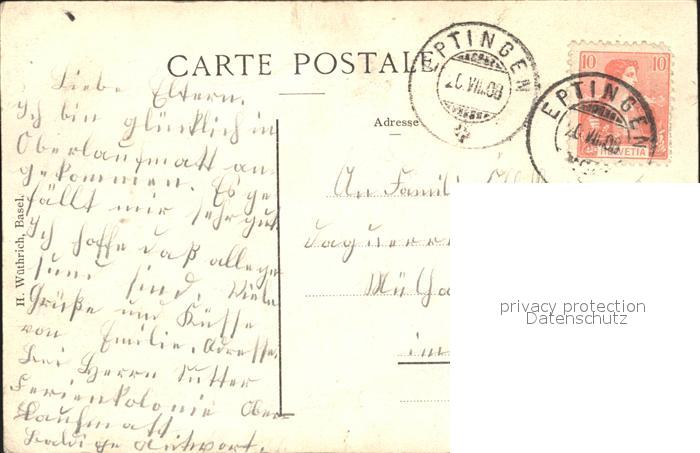 CARTE POSTALE
EPTINGEN
20.VII.08
EPTINGEN
20.VII.08
10 10
HELVETIA
Adresse
Liebe Eltern.
Ich bin glücklich in
Oberlaufmatt an
gekommen. Es ge
fällt mir sehr gut
Ich hoffe daß alle ge
sund sind. Viele
Grüße und Küsse
von Emilie. Adresse.
bei Herrn Sutter
Ferienkolonie Ober-
Laufmatt
Baldige Antwort.
An Famili
Daguerre
Mülha
in
H. Wüthrich, Basel.
privacy protection
Datenschutz